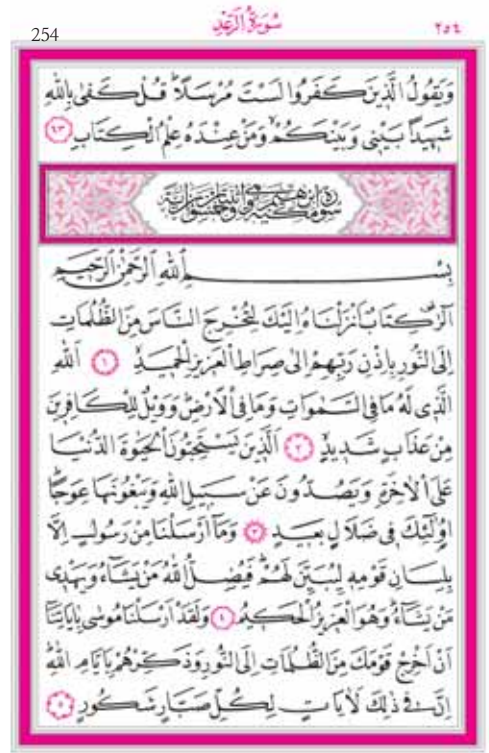 254 سُورَةُ الرَّعْدِ ٢٥٤
وَيَقُولُ الَّذِينَ كَفَرُوا لَسْتَ مُرْسَلًا قُلْ كَفٰى بِاللّٰهِ
شَهِيدًا بَيْنِي وَبَيْنَكُمْ وَمَنْ عِنْدَهُ عِلْمُ الْكِتَابِ ٤٣
بِسْمِ اللّٰهِ الرَّحْمٰنِ الرَّحِيمِ
الٓرٰ كِتَابٌ اَنْزَلْنَاهُ اِلَيْكَ لِتُخْرِجَ النَّاسَ مِنَ الظُّلُمَاتِ
اِلَى النُّورِ بِاِذْنِ رَبِّهِمْ اِلٰى صِرَاطِ الْعَزِيزِ الْحَمِيدِ ١ اَللّٰهِ
الَّذِي لَهُ مَا فِي السَّمٰوَاتِ وَمَا فِي الْاَرْضِ وَوَيْلٌ لِلْكَافِرِينَ
مِنْ عَذَابٍ شَدِيدٍ ٢ اَلَّذِينَ يَسْتَحِبُّونَ الْحَيٰوةَ الدُّنْيَا
عَلَى الْاٰخِرَةِ وَيَصُدُّونَ عَنْ سَبِيلِ اللّٰهِ وَيَبْغُونَهَا عِوَجًا
اُولٰٓئِكَ فِي ضَلَالٍ بَعِيدٍ ٣ وَمَٓا اَرْسَلْنَا مِنْ رَسُولٍ اِلَّا
بِلِسَانِ قَوْمِهِ لِيُبَيِّنَ لَهُمْ فَيُضِلُّ اللّٰهُ مَنْ يَشَٓاءُ وَيَهْدِي
مَنْ يَشَٓاءُ وَهُوَ الْعَزِيزُ الْحَكِيمُ ٤ وَلَقَدْ اَرْسَلْنَا مُوسٰى بِاٰيَاتِنَٓا
اَنْ اَخْرِجْ قَوْمَكَ مِنَ الظُّلُمَاتِ اِلَى النُّورِ وَذَكِّرْهُمْ بِاَيَّامِ اللّٰهِ
اِنَّ فِي ذٰلِكَ لَاٰيَاتٍ لِكُلِّ صَبَّارٍ شَكُورٍ ٥